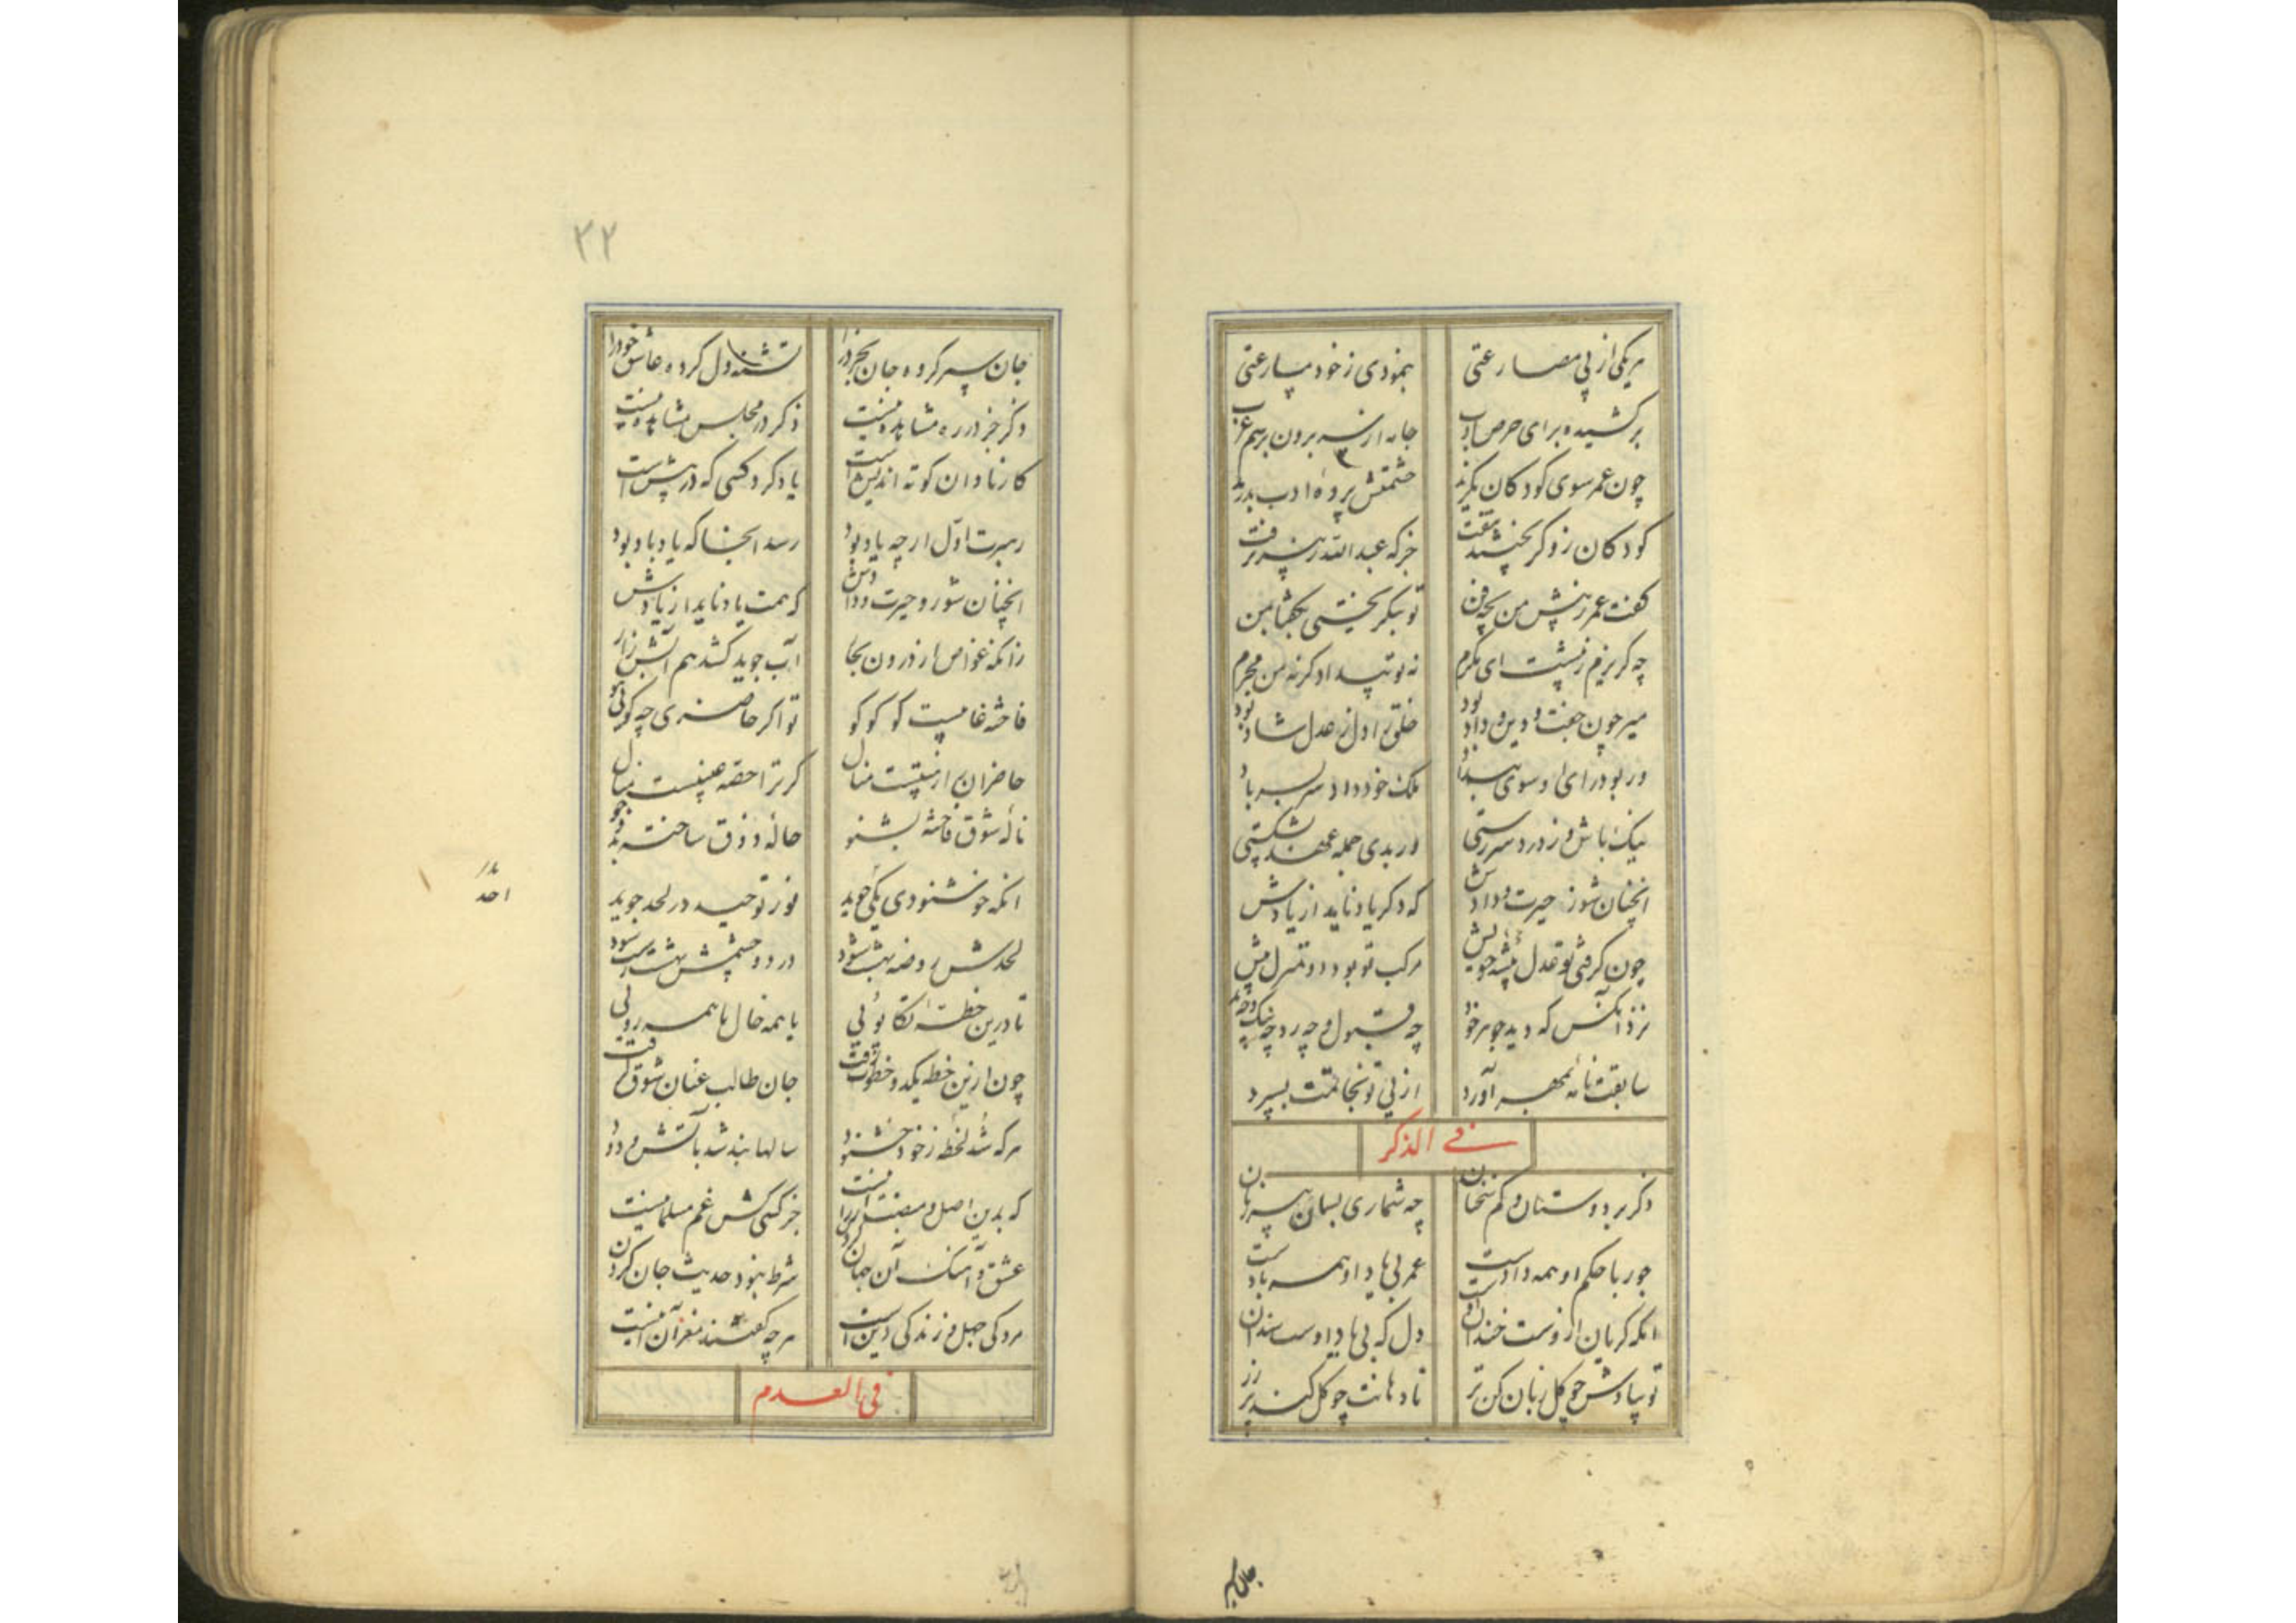 هریکی از پی مصارعتی بنمودی ز خود مسارعتی
برکشیده برای حرص ادب جامه از سر برون برسم عرب
چون عمر سوی کودکان نگرید حشمتش پرده ادب بدرید
کودکان زو گریختند بتفت جز که عبدالله زبیر نرفت
گفت عمر ز پیش من بچه فن تو بنگریختی بگفتا من
چه گریزم ز پیشت ای مکرم نه تو بیدادگر نه من مجرم
میر چون جفت دین و داد بود خلق را دل ز عدل شاد بود
ور بود رای او سوی بیداد ملک خود داد سر بسر بر باد
نیک باش و ز درد سر رستی ور بدی جمله عهد بشکستی
آنچنان شو ز حیرت و دادش که دگر یاد ناید از یادش
چون گرفتی تو عدل پیشه خویش مرکب تو بود دو منزل پیش
نزد آنکس که دید جوهر خود چه قبول و چه رد چه نیک و چه بد
سابقت نامه مهر آورد از پی تو بخاتمت بسپرد
فی الذکر
ذکر بر دوستان و کم سخنان چه شماری بسان پیرزنان
جور با حکم او همه دادست عمر بی یاد او همه بادست
آنکه گریان ازوست خندان اوست دل که بی یاد اوست سندان اوست
تو بیادش چو گل زبان کن تر تا دهانت چو گل کند پر زر
جان سپر
۳۲
جان سپر کرده جان بخرد را تشنه دل کرده عاشق خود را
ذکر جز در ره مشاهده نیست ذکر در مجلس مشاهده نیست
کار نادان کوته اندیش است یاد کرد کسی که در پیش است
رهبرت اول ار چه یاد بود رسد آنجا که یاد باد بود
آنچنان شو ز حیرت و دادش که همت یاد ناید از یادش
زانکه غواص از درون بحار آب جوید کشد هم آبش زار
فاخته غایبست گو کو کو تو اگر حاضری چه گوئی هو
حاضران از هیبتست منال گر ترا حصه غیبتست بنال
ناله شوق فاخته بشنو حاله ذوق ساخته بدو جو
آنکه خوشنودی یکی جوید نور توحید در لحد جوید
لحدش روضه بهشت شود در دو چشمش بهشت زشت شود
تا درین خطه تکاپوئی با همه خال یا همه روئی
چون ازین خطه یکدو خطوه برفت جان طالب عنان شوق گرفت
هر که شد لحظه ز خود خشنود سالها بند شد بآتش و دود
که بدین اصل و منصب ارزانیست جز کسی کش غم مسلمانیست
عشق و آهنگ آن جهان کردن شرط نبود حدیث جان کردن
مردگی جهل و زندگی دین است هرچه گفتند مغز آن اینست
فی العدم
احد